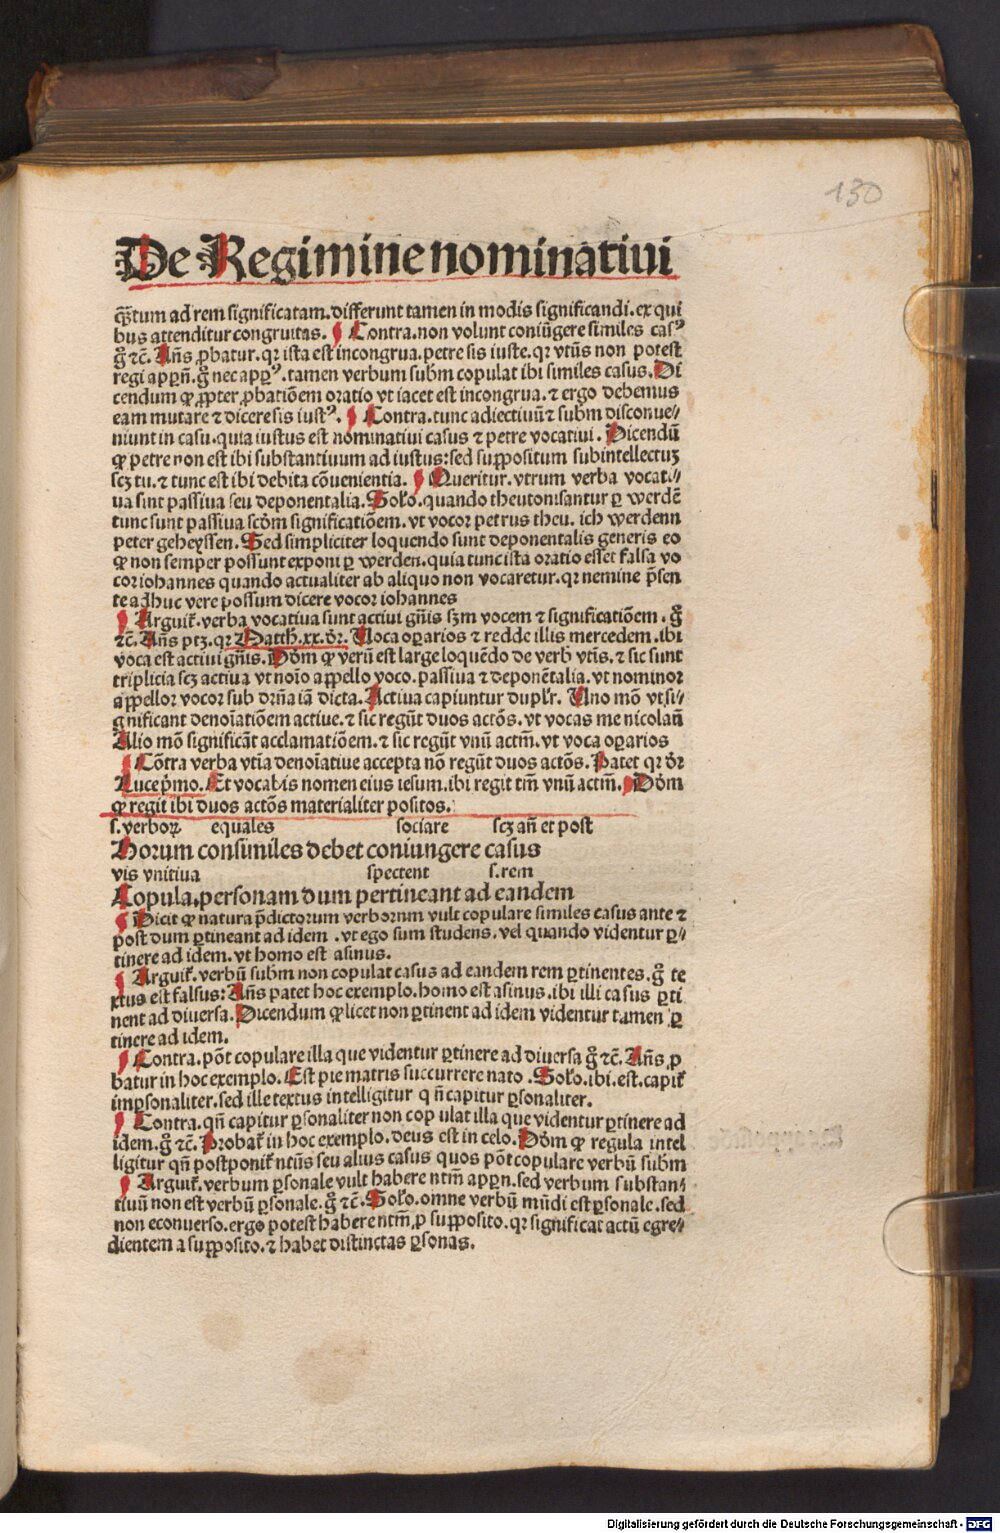 130
De Regimine nominatiui
q̃ʒtum ad rem significatam. differunt tamen in modis significandi. ex qui
bus attenditur congruitas. ¶ Contra. non volunt coniũgere similes casꝰ
g̃ ⁊c̃. Añs ꝓbatur. qꝛ ista est incongrua. petre sis iuste. qꝛ vtũs non potest
regi a ꝑ pñ. g̃ nec a ꝑ pꝰ. tamen verbum subm copulat ibi similes casus. Di
cendum ꝙ ꝓpter ꝓbatiõem oratio vt iacet est incongrua. ⁊ ergo debemus
eam mutare ⁊ dicere sis iustꝰ. ¶ Contra. tunc adiectiuũ ⁊ subm disconue⸗
niunt in casu. quia iustus est nominatiui casus ⁊ petre vocatiui. Dicendũ
ꝙ petre non est ibi substantiuum ad iustus: sed suppositum subintellectuʒ
scʒ tu. ⁊ tunc est ibi debita cõuenientia. ¶ Queritur. vtrum verba vocati⸗
ua sint passiua seu deponentalia. Solo. quando theutonisantur ꝑ werdẽ
tunc sunt passiua scðm significatiõem. vt vocor petrus theu. ich werdenn
peter geheyssen. Sed simpliciter loquendo sunt deponentalis generis eo
ꝙ non semper possunt exponi ꝑ werden. quia tunc ista oratio esset falsa vo
cor iohannes quando actualiter ab aliquo non vocaretur. qꝛ nemine p̃sen
te adhuc vere possum dicere vocor iohannes
¶ Arguit̃. verba vocatiua sunt actiui gñis sʒm vocem ⁊ significatiõem. g̃
⁊c̃. Añs ptʒ. qꝛ Matth. xx. ðꝛ. Uoca oꝑarios ⁊ redde illis mercedem. ibi
voca est actiui gñis. Dõm ꝙ verũ est large loquẽdo de verb vtĩs. ⁊ sic sunt
triplicia scʒ actiua vt noĩo appello voco. passiua ⁊ deponẽtalia. vt nominor
appellor vocor sub drña iã dicta. Actiua capiuntur duplr̃. Uno mõ vt si⸗
gnificant denoĩatiõem actiue. ⁊ sic regũt duos actõs. vt vocas me nicolaũ
Alio mõ significãt acclamatiõem. ⁊ sic regũt vnũ actm̃. vt voca oꝑarios
¶ Cõtra verba vtĩa denoĩatiue accepta nõ regũt duos actõs. Patet qꝛ ðꝛ
Luce p̃mo. Et vocabis nomen eius iesum. ibi regit tm̃ vnũ actm̃. ¶ Dõm
ꝙ regit ibi duos actõs materialiter positos.
s. verboꝝ equales sociare scʒ añ et post
Horum consimiles debet coniungere casus
vis vnitiua spectent s. rem
Copula. personam dum pertineant ad eandem
¶ Dicit ꝙ natura p̃dictorum verborum vult copulare similes casus ante ⁊
post dum ꝑtineant ad idem. vt ego sum studens. vel quando videntur ꝑ⸗
tinere ad idem. vt homo est asinus.
¶ Arguit̃. verbũ subm non copulat casus ad eandem rem ꝑtinentes. g̃ te
xtus est falsus: Añs patet hoc exemplo. homo est asinus. ibi illi casus ꝑti
nent ad diuersa. Dicendum ꝙ licet non ꝑtinent ad idem videntur tamen ꝑ
tinere ad idem.
¶ Contra. põt copulare illa que videntur ꝑtinere ad diuersa g̃ ⁊c̃. Añs ꝓ
batur in hoc exemplo. Est pie matris succurrere nato. Solo. ibi. est. capit̃
impsonaliter. sed ille textus intelligitur q ñ capitur ꝑsonaliter.
¶ Contra. qñ capitur ꝑsonaliter non copulat illa que videntur ꝑtinere ad
idem. g̃ ⁊c̃. Probat̃ in hoc exemplo. deus est in celo. Dõm ꝙ regula intel
ligitur qñ postponit̃ ntũs seu alius casus quos põt copulare verbũ subm
¶ Arguit̃. verbum ꝑsonale vult habere ntm̃ a ꝑ pñ. sed verbum substan⸗
tiuũ non est verbũ ꝑsonale. g̃ ⁊c̃. Solo. omne verbũ mũdi est ꝑsonale. sed
non econuerso. ergo potest habere ntm̃ ꝓ supposito. qꝛ significat actũ egre⸗
dientem a supposito. ⁊ habet distinctas ꝑsonas.
Digitalisierung gefördert durch die Deutsche Forschungsgemeinschaft - DFG